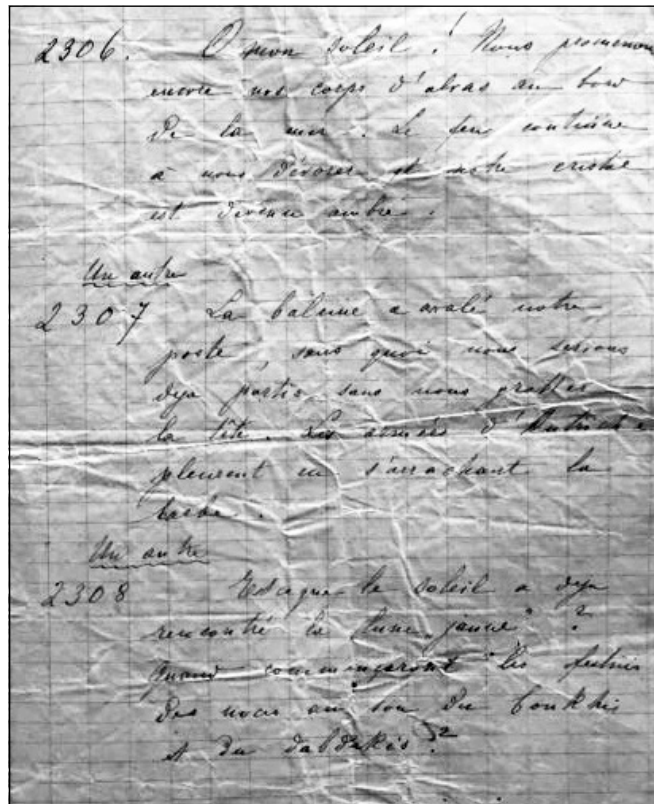 2306. O mon soleil ! Nous promenons
encore nos corps d'abras au bord
de la mer. Le feu continue
à nous dévorer et notre
est devenu ambre.
Un autre
2307 La baleine a avalé notre
poste, sans quoi nous serions
deja partis sans nous gratter
la tête. Les armées d'Autriche
pleurent en s'arrachant la
barbe.
Un autre
2308 Est-ce que le soleil a deja
rencontré la lune jaune ?
Quand commenceront les festins
des noces au son du
et du ?